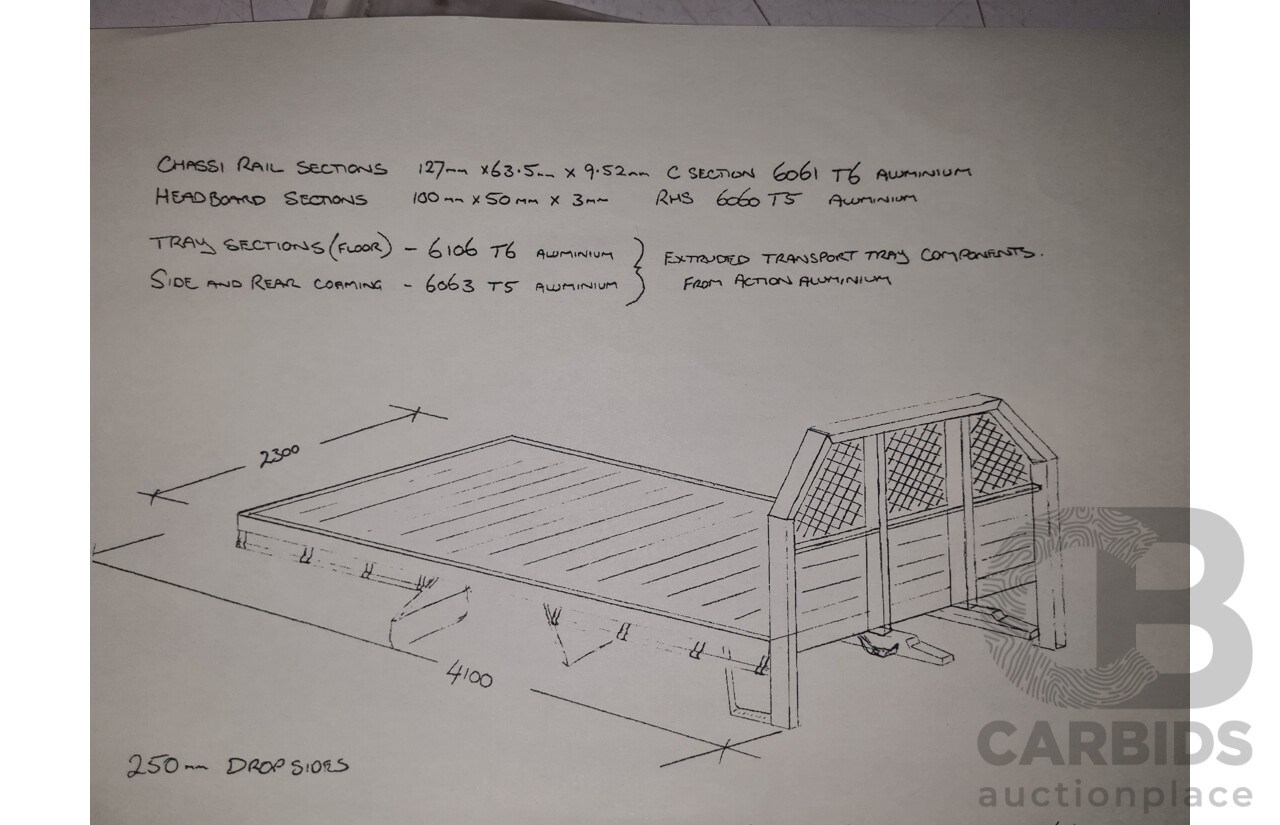 CHASSI RAIL SECTIONS 127mm x 63.5mm x 9.52mm C SECTION 6061 T6 ALUMINIUM
HEADBOARD SECTIONS 100mm x 50mm x 3mm RHS 6060 T5 ALUMINIUM
TRAY SECTIONS (FLOOR) - 6106 T6 ALUMINIUM } EXTRUDED TRANSPORT TRAY COMPONENTS.
SIDE AND REAR COAMING - 6063 T5 ALUMINIUM } FROM ACTION ALUMINIUM
2300
4100
250mm DROP SIDES
CB
CARBIDS
auctionplace